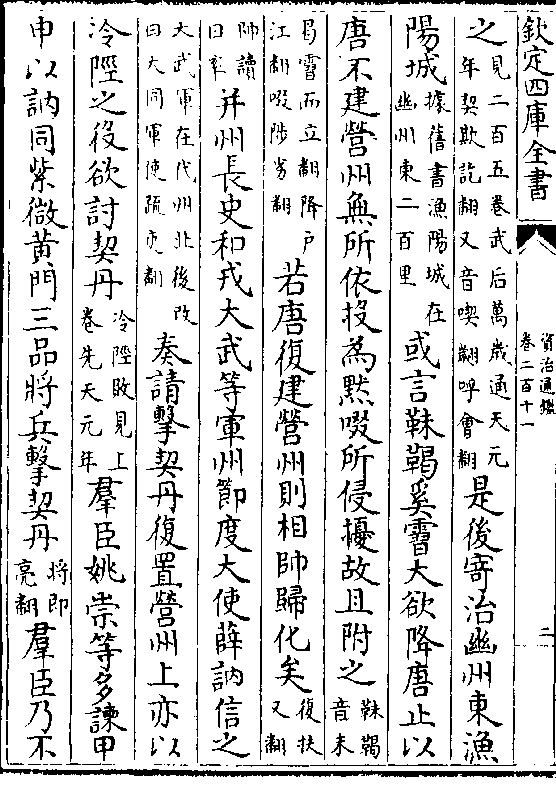 欽定四庫全書
資治通鑑
卷二百十一
二
之見二百五卷武后萬歲通天元年契欺訖翻又音喫翽呼會翻是後寄治幽州東漁
陽城據舊書漁陽城在幽州東二百里或言靺鞨奚霫大欲降唐止以
唐不建營州無所依投為默啜所侵擾故且附之靺鞨音末
曷霫而立翻降戶江翻啜陟劣翻若唐復建營州則相帥歸化矣復扶又翻
帥讀曰率并州長史和戎大武等軍州節度大使薛訥信之
大武軍在代州北後改曰大同軍使疏吏翻奏請擊契丹復置營州上亦以
冷陘之役欲討契丹冷陘敗見上卷先天元年羣臣姚崇等多諫甲
申以訥同紫微黄門三品將兵擊契丹將即亮翻羣臣乃不